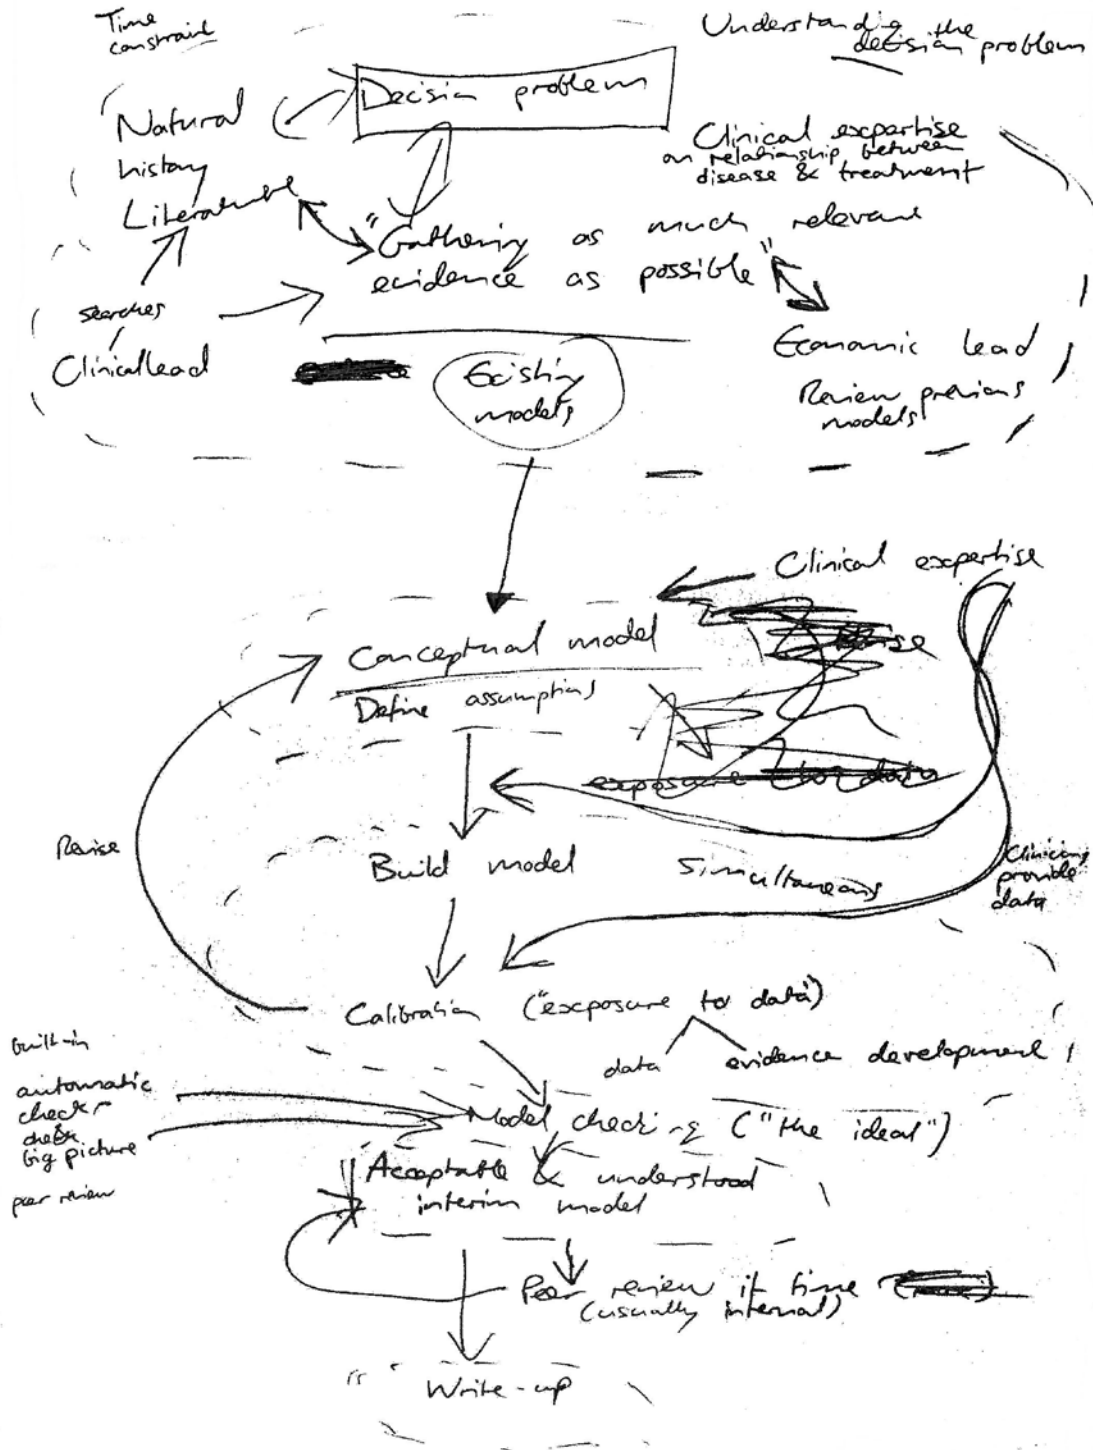 Time
constraint
Understanding the
decision problem
Decision problem
Natural
history
Literature
Clinical expertise
on relationship between
disease & treatment
"Gathering as much relevant
evidence as possible"
searches
Clinical lead
Existing
models
Economic lead
Review previous
models
Clinical expertise
Conceptual model
Define assumptions
exposure to data
Revise
Build model
Simultaneous
Clinicians
provide
data
Calibration ("exposure to data")
data
evidence development
built-in
automatic
checks
check
big picture
peer review
Model checking ("the ideal")
Acceptable & understood
interim model
Peer review if time
(usually internal)
Write-up